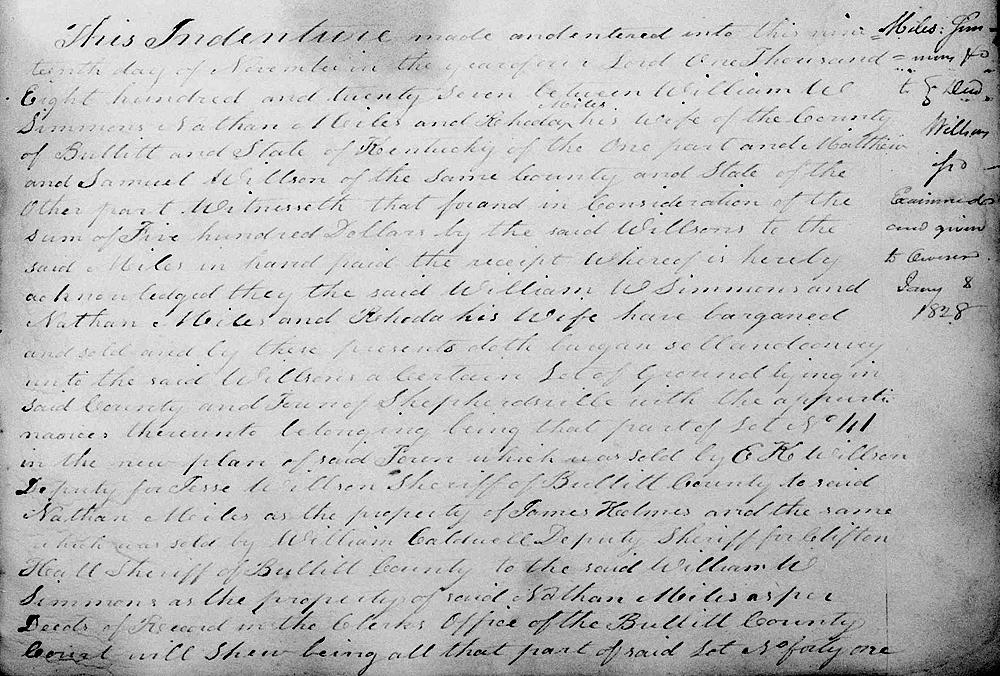 This Indenture made and entered into this nine
teenth day of November in the year of our Lord One Thousand
Eight hundred and twenty Seven between William W
Simmons Nathan Miles and Rhoda Miles his Wife of the County
of Bullitt and State of Kentucky of the One part and Matthew
and Samuel Willson of the Same County and State of the
Other part Witnesseth that for and in Consideration of the
sum of Five hundred Dollars by the said Willsons to the
said Miles in hand paid the receipt Whereof is hereby
acknowledged they the said William W Simmons and
Nathan Miles and Rhoda his Wife have barganed
and sold and by these presents doth bargan sell and convey
unto the said Willsons a Certain Lot of Ground lying in
said County and Town of Shepherdsville with the appurti
nances thereunto belonging being that part of Lot No 41
in the new plan of said Town which was sold by E K Willson
Deputy for Jesse Willson Sheriff of Bullitt County to said
Nathan Miles as the property of James Holmes and the same
which was sold by William Caldwell Deputy Sheriff for Clifton
Hall Sheriff of Bullitt County to the said William W
Simmons as the property of said Nathan Miles as per
Deeds of Record in the Clerks Office of the Bullitt County
Court will Shew being all that part of said Lot No forty one
Miles: Sim
to } Deed
Willson
Examined
and given
to Owner
Jany 8
1828